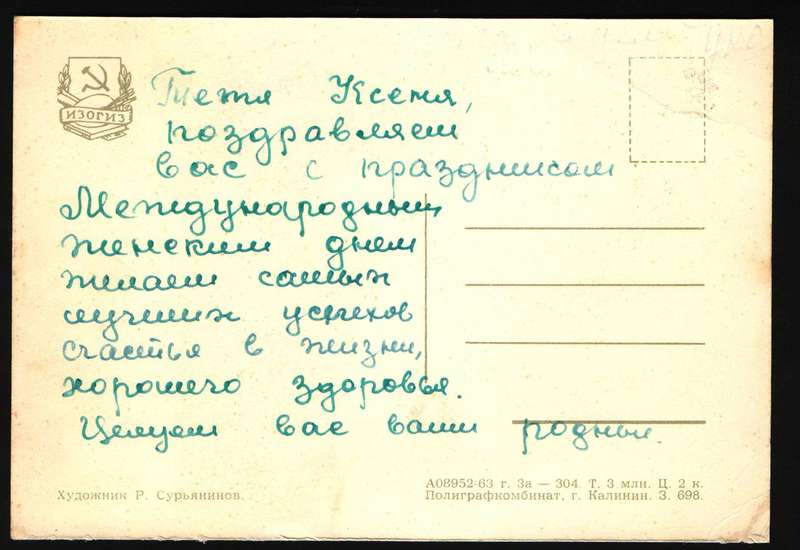 ИЗОГИЗ
Тетя Ксеня,
поздравляем
вас с праздником
Международным
женским днем
желаем самых
лучших успехов
счастья в жизни,
хорошего здоровья.
Целуем вас ваши родные.
Художник Р. Сурьянинов.
А08952-63 г. За — 304. Т. 3 млн. Ц. 2 к.
Полиграфкомбинат, г. Калинин. З. 698.